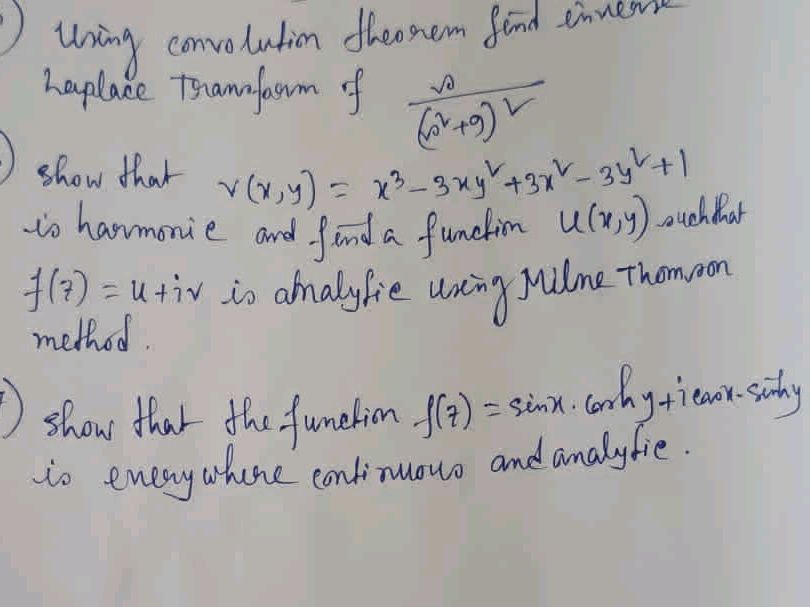 ) Using convolution theorem find inverse
Laplace Transform of s/(s²+9)²
) show that v(x,y) = x³-3xy²+3x²-3y²+1
is harmonic and find a function u(x,y) such that
f(z) = u+iv is analytic using Milne Thomson
method.
) show that the function f(z) = sinx. coshy+i cosx. sinhy
is everywhere continuous and analytic.